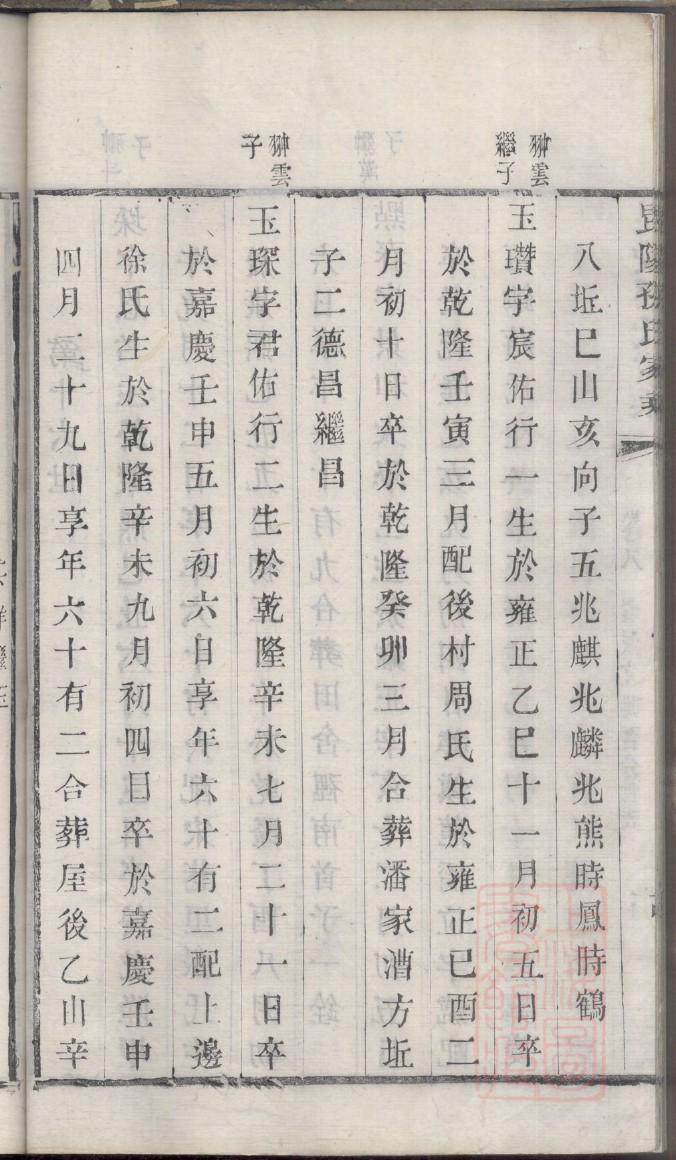 八坵巳山亥向子五兆麒兆麟兆熊時鳳時鶴
翀雲繼子
玉瓚字宸佑行一生於雍正乙巳十一月初五日卒
於乾隆壬寅三月配後村周氏生於雍正己酉二
月初十日卒於乾隆癸卯三月合葬潘家漕方坵
子二德昌繼昌
翀雲子
玉琛字君佑行二生於乾隆辛未七月二十一日卒
於嘉慶壬申五月初六日享年六十有二配上邊
徐氏生於乾隆辛未九月初四日卒於嘉慶壬申
四月二十九日享年六十有二合葬屋後乙山辛